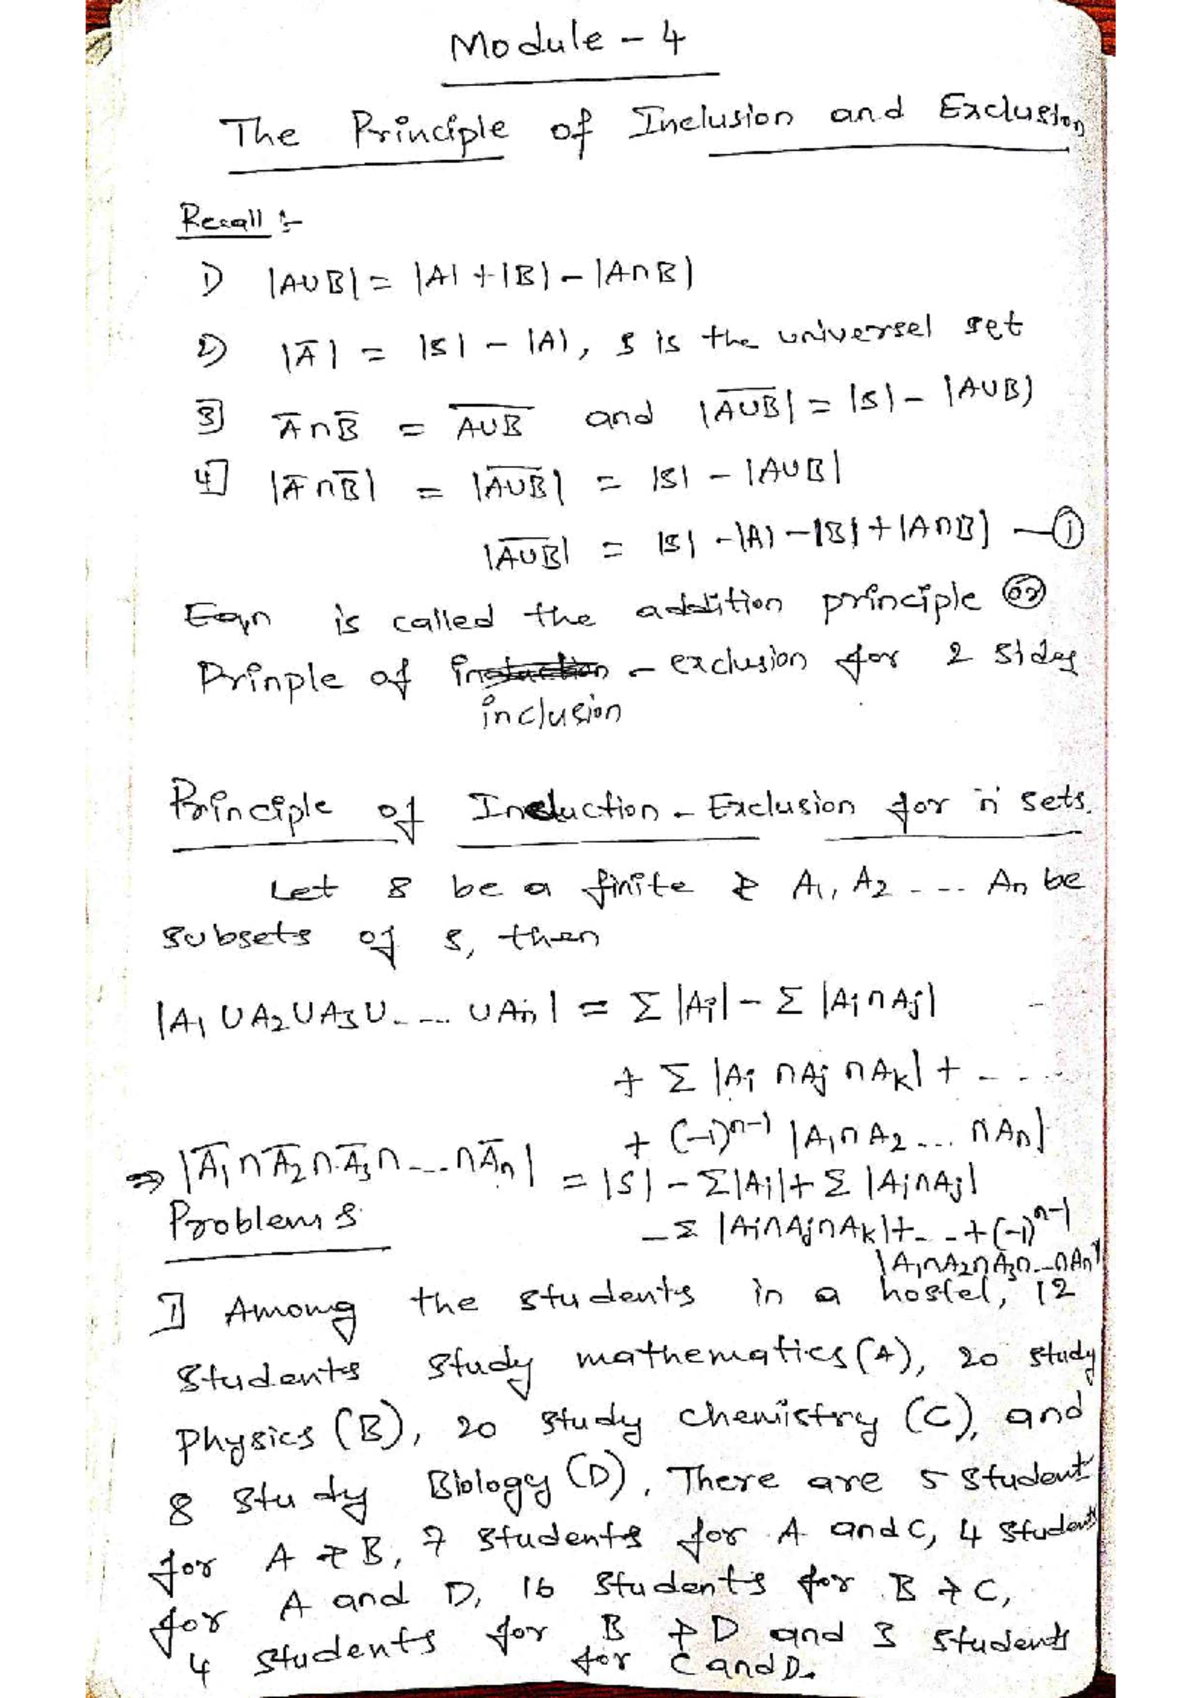 Module - 4
The Principle of Inclusion and Exclusion
Recall :-
1) |A∪B| = |A| + |B| - |A∩B|
2) |A̅| = |S| - |A|, S is the universel set
3] A̅∩B̅ = \overline{A∪B} and |\overline{A∪B}| = |S| - |A∪B|
4] |A̅∩B̅| = |\overline{A∪B}| = |S| - |A∪B|
|\overline{A∪B}| = |S| - |A| - |B| + |A∩B| — ①
Eqn is called the addition principle or
Prinple of - exclusion for 2 sides
inclusion
Principle of Incluction - Exclusion for 'n' sets.
Let S be a finite & A₁, A₂ - - - An be
subsets of S, then
|A₁ ∪ A₂ ∪ A₃ ∪ - - -- ∪ An| = Σ |Ai| - Σ |Ai ∩ Aj|
+ Σ |Ai ∩ Aj ∩ Ak| + - - - -
+ (-1)ⁿ⁻¹ |A₁ ∩ A₂ --- ∩ An|
⇒ |A̅₁ ∩ A̅₂ ∩ A̅₃ ∩ --- ∩ A̅n| = |S| - Σ|Ai| + Σ |Ai∩Aj|
- Σ |Ai∩Aj∩Ak| + - - + (-1)ⁿ⁻¹
|A₁∩A₂∩A₃∩--∩An|
Problems
1] Among the students in a hostel, 12
students study mathematics (A), 20 study
physics (B), 20 study chemistry (C), and
8 study Biology (D). There are 5 student
for A & B, 7 students for A and C, 4 students
for A and D, 16 students for B & C,
4 students for B & D and 3 students
for C and D.